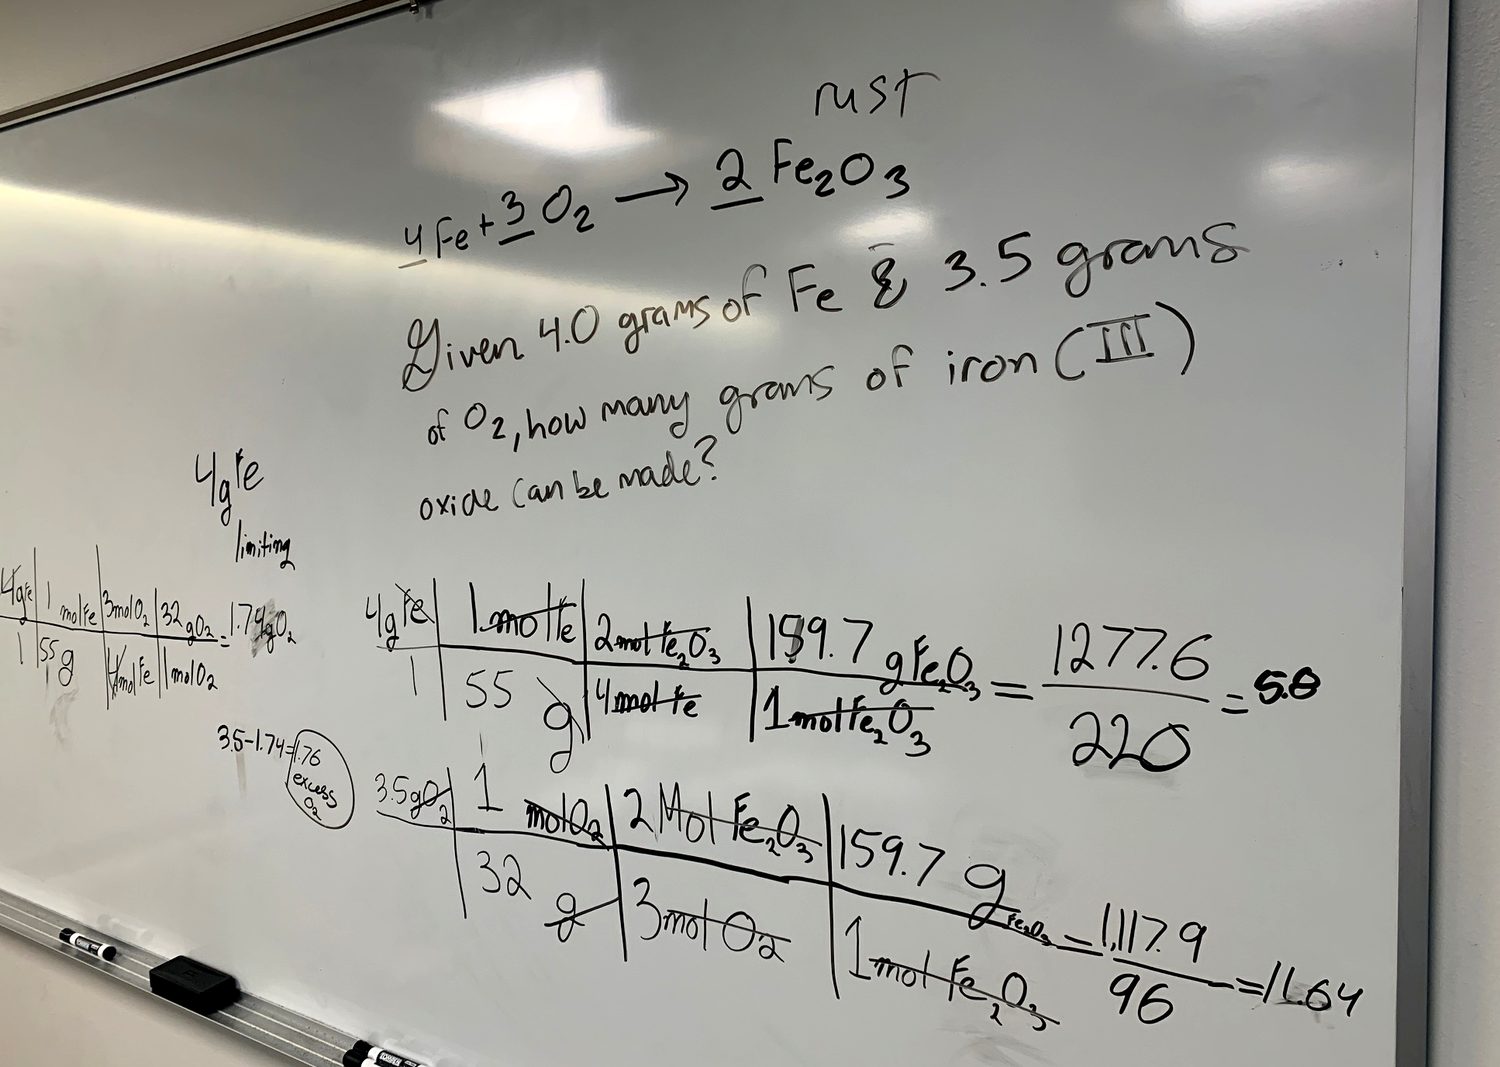 rust
4Fe + 3O₂ → 2Fe₂O₃
Given 4.0 grams of Fe & 3.5 grams
of O₂, how many grams of iron (III)
oxide can be made?
4gFe
limiting
4gFe | 1 molFe | 3molO₂ | 32 gO₂ = 1.74gO₂
1 | 55 g | 4molFe | 1molO₂
3.5-1.74=1.76
excess
O₂
4gFe | 1molFe | 2molFe₂O₃ | 159.7 gFe₂O₃ = 1277.6 = 5.8
1 | 55 g | 4molFe | 1molFe₂O₃ 220
3.5gO₂ | 1 molO₂ | 2MolFe₂O₃ | 159.7 g Fe₂O₃ = 1,117.9 = 11.64
32 g | 3molO₂ | 1molFe₂O₃ 96